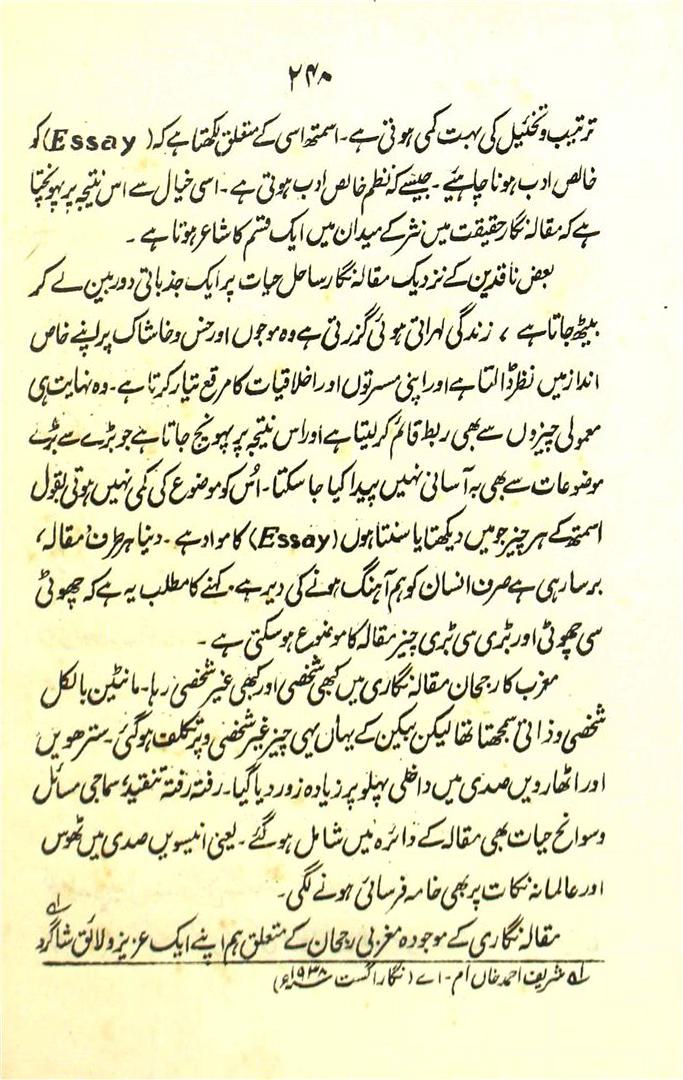 ۲۴۰
ترتیب و تخئیل کی بہت کمی ہوتی ہے۔ اسمتھ اسی کے متعلق لکھتا ہے کہ (Essay) کو
خالص ادب ہونا چاہیئے۔ جیسے کہ نظم خالص ادب ہوتی ہے۔ اسی خیال سے اس نتیجہ پر پہونچتا
ہے کہ مقالہ نگار حقیقت میں نثر کے میدان میں ایک قسم کا شاعر ہوتا ہے۔
بعض ناقدین کے نزدیک مقالہ نگار ساحل حیات پر ایک جذباتی دوربین لے کر
بیٹھ جاتا ہے، زندگی لہراتی ہوئی گزرتی ہے وہ موجوں اور خس و خاشاک پر اپنے خاص
انداز میں نظر ڈالتا ہے اور اپنی مسرتوں اور اخلاقیات کا مرقع تیار کرتا ہے۔ وہ نہایت ہی
معمولی چیزوں سے بھی ربط قائم کر لیتا ہے اور اس نتیجہ پر پہونچ جاتا ہے جو بڑے سے بڑے
موضوعات سے بھی بہ آسانی نہیں پیدا کیا جا سکتا۔ اُس کو موضوع کی کمی نہیں ہوتی بقول
اسمتھ کے ہر چیز جو میں دیکھتا یا سنتا ہوں (Essay) کا مواد ہے۔ دنیا ہر طرف مقالہ،
برسا رہی ہے صرف انسان کو ہم آہنگ ہونے کی دیر ہے۔ کہنے کا مطلب یہ ہے کہ چھوٹی
سی چھوٹی اور بڑی سی بڑی چیز مقالہ کا موضوع ہو سکتی ہے۔
مغرب کا رجحان مقالہ نگاری میں کبھی شخصی اور کبھی غیر شخصی رہا۔ مانٹین بالکل
شخصی و ذاتی سمجھتا تھا لیکن بیکن کے یہاں یہی چیز غیر شخصی و پر تکلف ہو گئی۔ سترھویں
اور اٹھارویں صدی میں داخلی پہلو پر زیادہ زور دیا گیا۔ رفتہ رفتہ تنقید، سماجی مسائل
و سوانح حیات بھی مقالہ کے دائرہ میں شامل ہو گئے۔ یعنی انیسویں صدی میں ٹھوس
اور عالمانہ نکات پر بھی خامہ فرسائی ہونے لگی۔
مقالہ نگاری کے موجودہ مغربی رجحان کے متعلق ہم اپنے ایک عزیز و لائق شاگرد ؎۱
؎۱ شریف احمد خاں ام۔ اے (نگار اگست ۱۹۳۸ء)